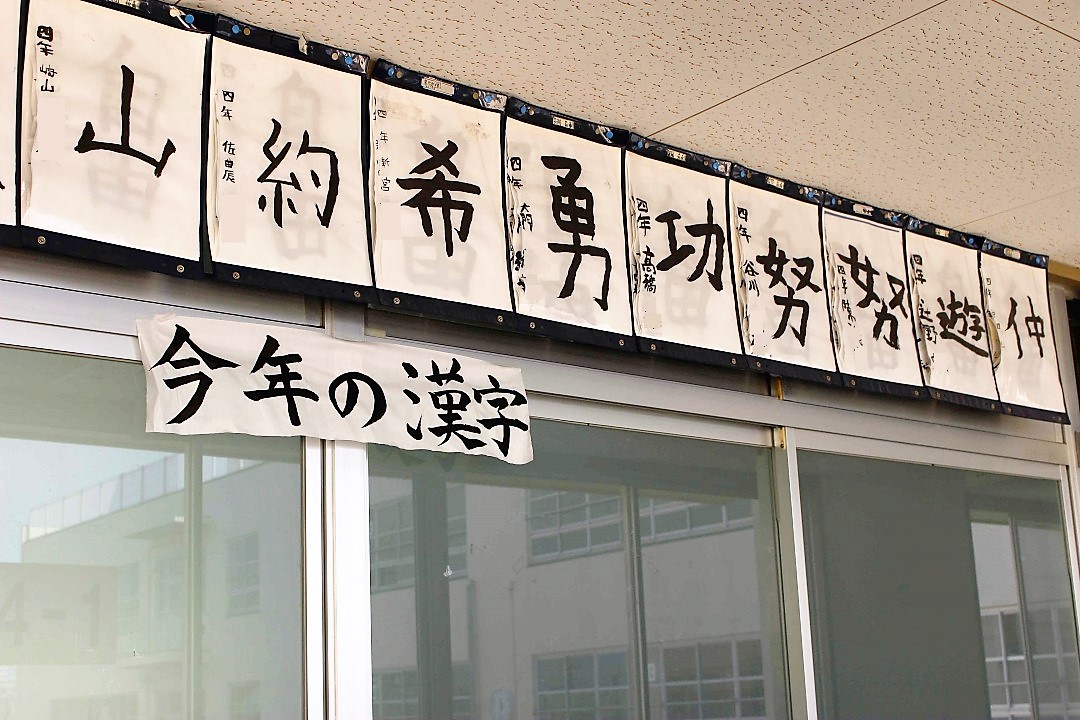 四年 崎山
山
四年 佐由辰
約
四年 新宮
希
四年
勇
四年 高橋
功
四年 谷川
努
四年
努
四年 辻野
遊
四年
仲
今年の漢字
4-1